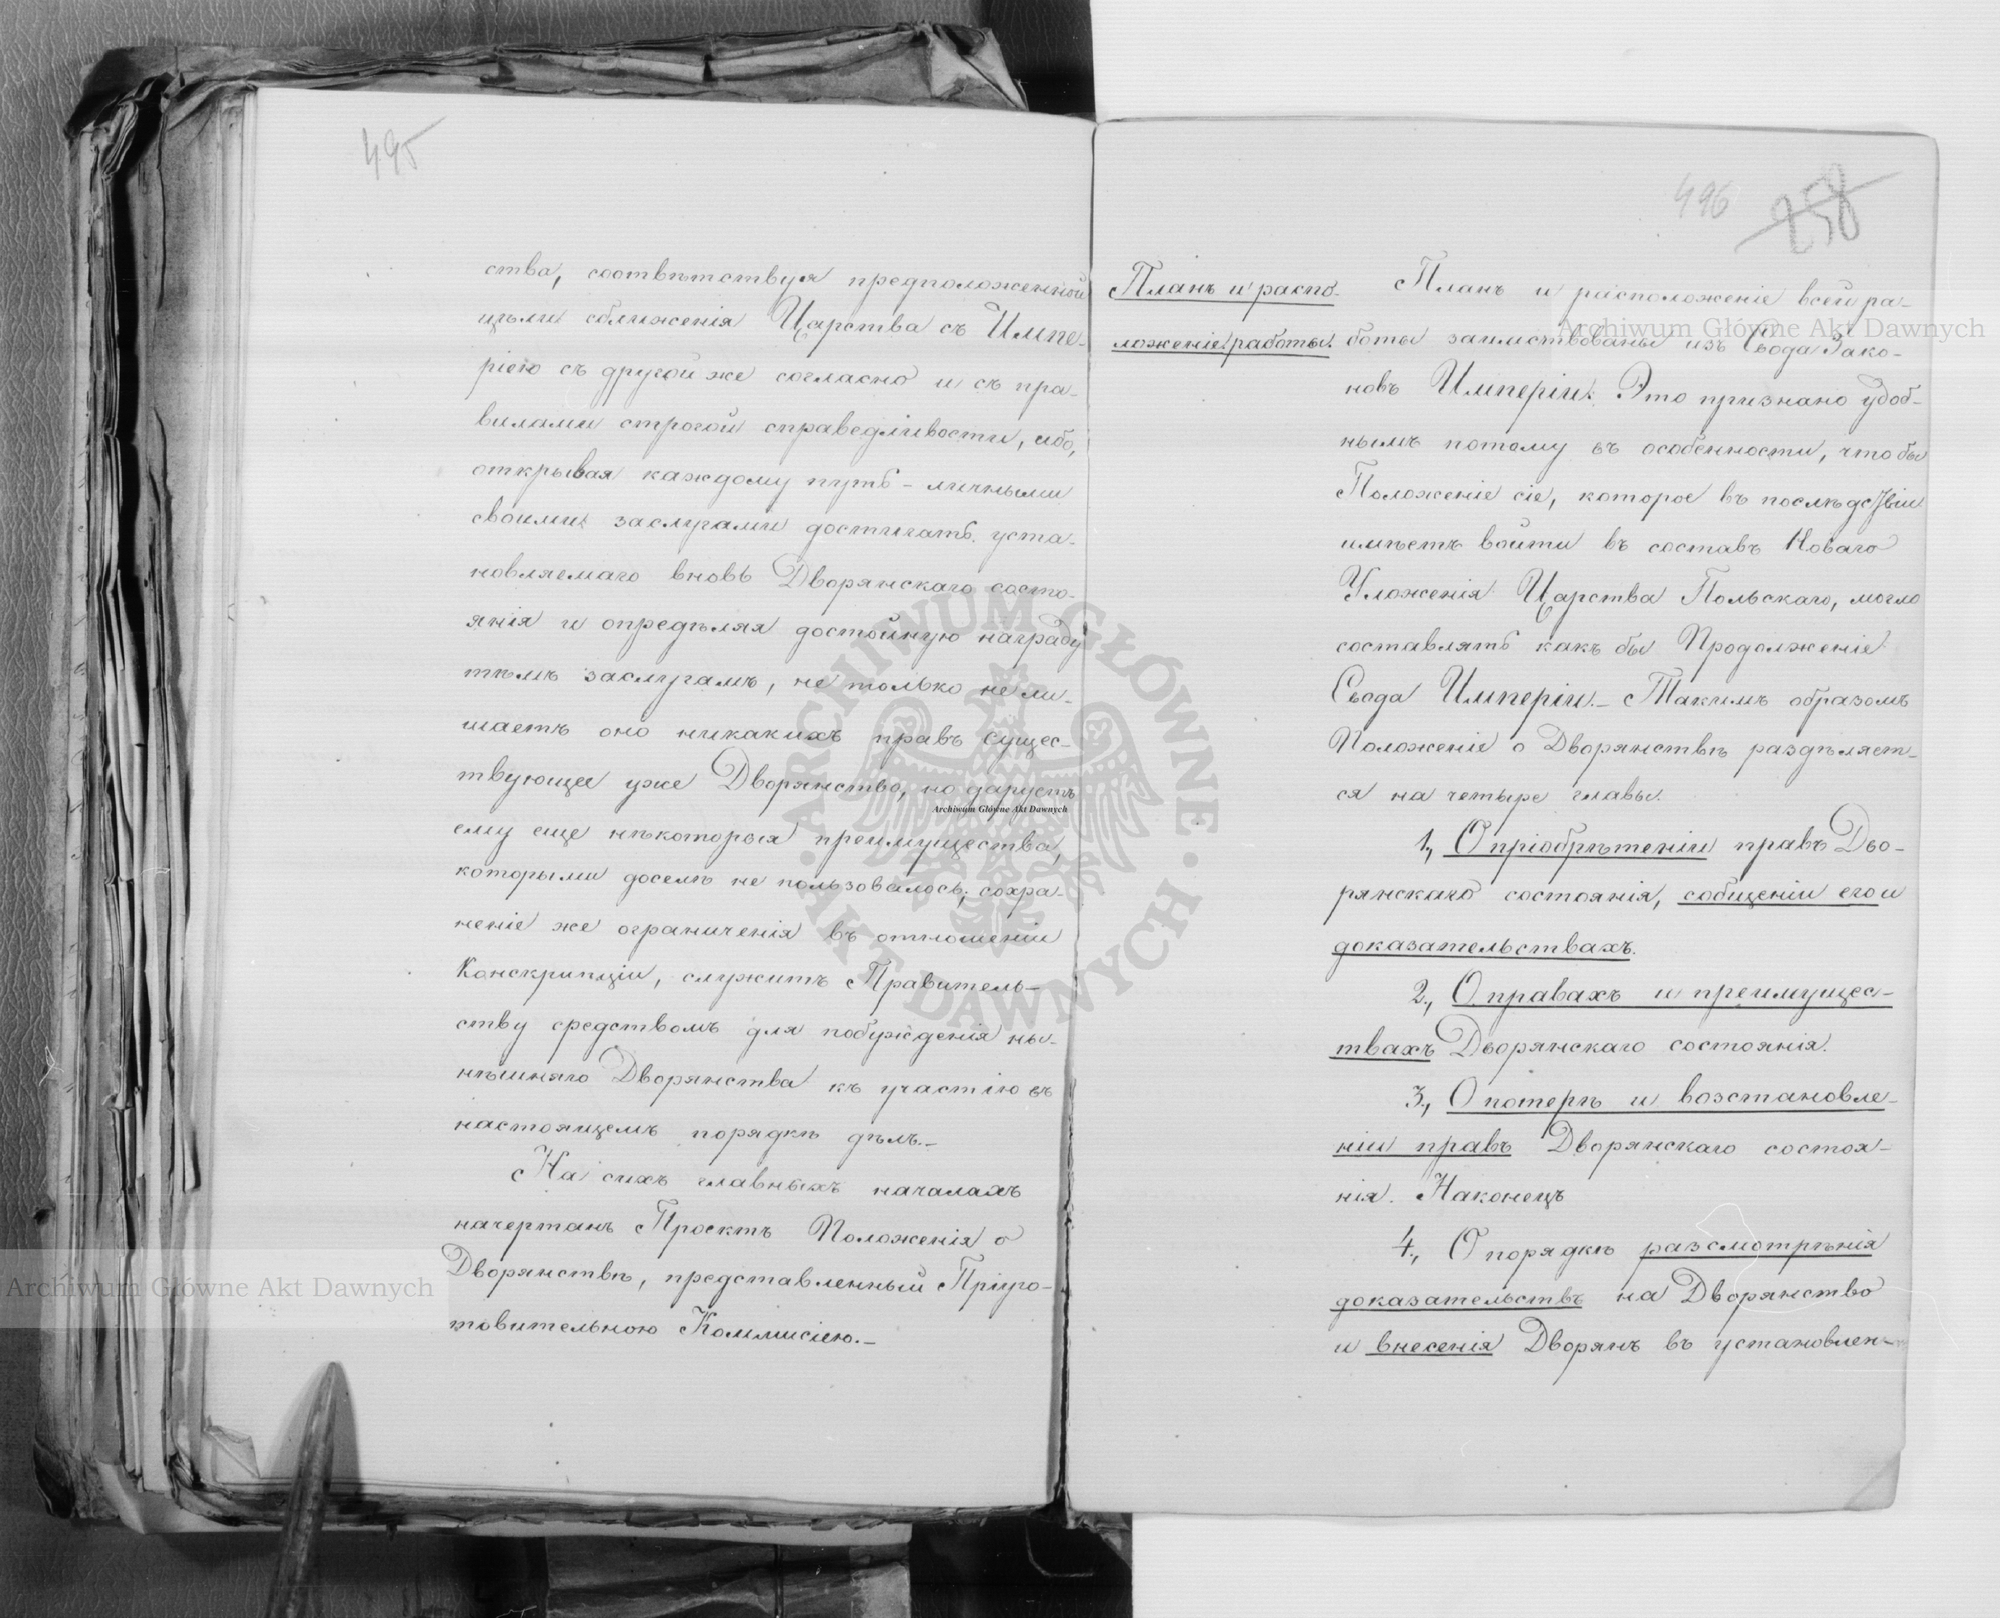 495
ства, соотвѣтствуя предположенной
цѣли сближенія Царства съ Импе-
ріею съ другой же согласно и съ пра-
вилами строгой справедливости, ибо,
открывая каждому путь - личными
своими заслугами достигать уста-
новляемаго вновь Дворянскаго состо-
янія и опредѣляя достойную награду
тѣмъ заслугамъ, не только не ли-
шаетъ оно никакихъ правъ сущес-
твующее уже Дворянство, но даруетъ
ему еще нѣкоторыя преимущества,
которыми доселѣ не пользовалось; сохра-
неніе же ограниченія въ отношеніи
Конскрипціи, служитъ Правитель-
ству средствомъ для побужденія ны-
нѣшняго Дворянства къ участію въ
настоящемъ порядкѣ дѣлъ.-
На сихъ главныхъ началахъ
начертанъ Проектъ Положенія о
Дворянствѣ, представленный Пріуго-
товительною Коммисіею.-
496 258
Планъ и распо-
ложеніе работы.
Планъ и расположеніе всей ра-
боты заимствованы изъ Свода Зако-
новъ Имперіи. Это признано удоб-
нымъ потому въ особенности, что бы
Положеніе сіе, которое въ послѣдствіи
имѣетъ войти въ составъ Новаго
Уложенія Царства Польскаго, могло
составлять какъ бы Продолженіе
Свода Имперіи.- Такимъ образомъ
Положеніе о Дворянствѣ раздѣляет-
ся на четыре главы.
1., О пріобрѣтеніи правъ Дво-
рянскаго состоянія, сообщеніи его и
доказательствахъ.
2., О правахъ и преимущес-
твахъ Дворянскаго состоянія.
3., О потерѣ и возстановле-
ніи правъ Дворянскаго состоя-
нія. Наконецъ
4., О порядкѣ разсмотрѣнія
доказательствъ на Дворянство
и внесенія Дворянъ въ установлен-
Archiwum Główne Akt Dawnych
Archiwum Główne Akt Dawnych
Archiwum Główne Akt Dawnych
ARCHIWUM GŁÓWNE · AKT DAWNYCH ·